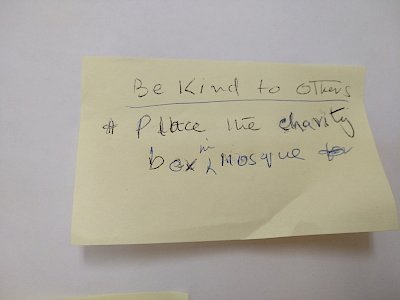 Be Kind to others
# Place the charity
box in Mosque